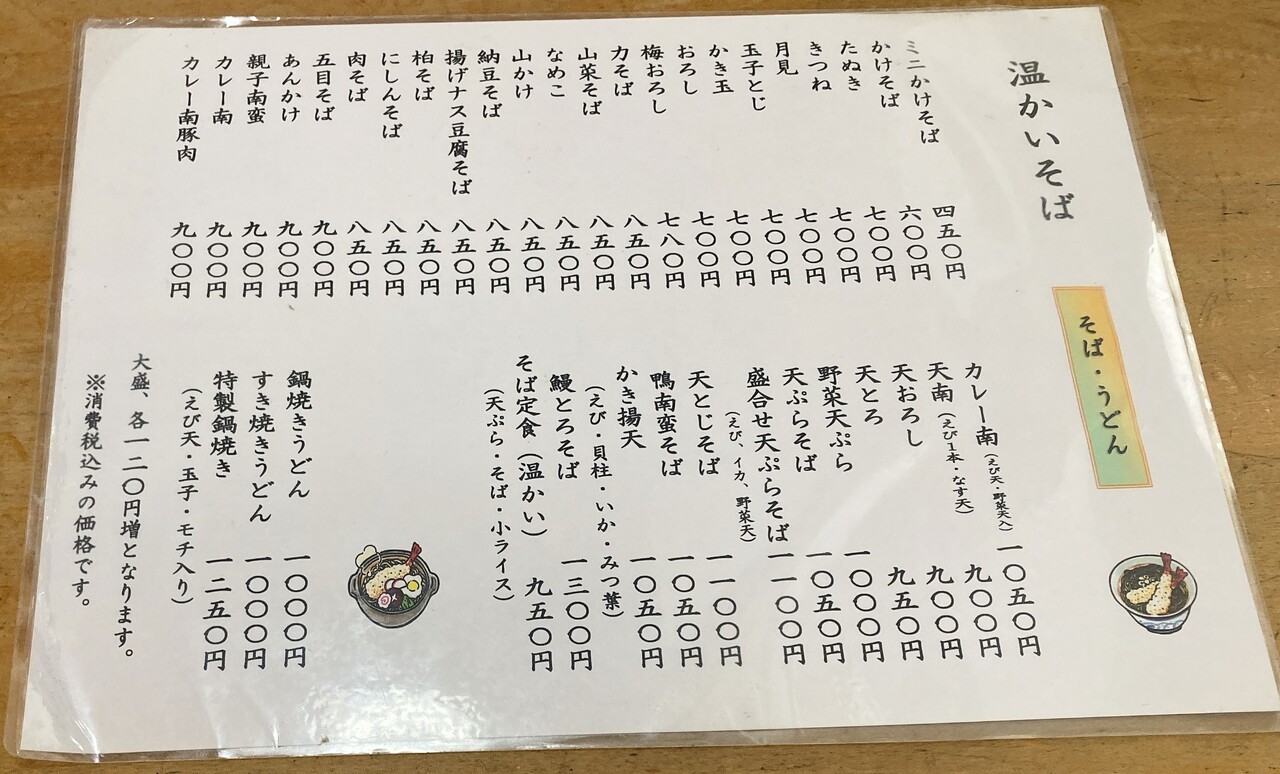 温かいそば
そば・うどん
ミニかけそば 四五〇円
かけそば 六〇〇円
たぬき 七〇〇円
きつね 七〇〇円
月見 七〇〇円
玉子とじ 七〇〇円
かき玉 七〇〇円
おろし 七〇〇円
梅おろし 七八〇円
力そば 八五〇円
山菜そば 八五〇円
なめこ 八五〇円
山かけ 八五〇円
納豆そば 八五〇円
揚げナス豆腐そば 八五〇円
柏そば 八五〇円
にしんそば 八五〇円
肉そば 八五〇円
五目そば 九〇〇円
あんかけ 九〇〇円
親子南蛮 九〇〇円
カレー南 九〇〇円
カレー南豚肉 九〇〇円
カレー南（えび天・野菜天入） 一〇五〇円
天南（えび1本・なす天） 九〇〇円
天おろし 九〇〇円
天とろ 九五〇円
野菜天ぷら 一〇〇〇円
天ぷらそば 一〇五〇円
盛合せ天ぷらそば 一一〇〇円
（えび、イカ、野菜天）
天とじそば 一一〇〇円
鴨南蛮そば 一〇五〇円
かき揚天 一〇五〇円
（えび・貝柱・いか・みつ葉）
鰻とろそば 一三〇〇円
そば定食（温かい） 九五〇円
（天ぷら・そば・小ライス）
鍋焼きうどん 一〇〇〇円
すき焼きうどん 一〇〇〇円
特製鍋焼き 一二五〇円
（えび天・玉子・モチ入り）
大盛、各一二〇円増となります。
※消費税込みの価格です。